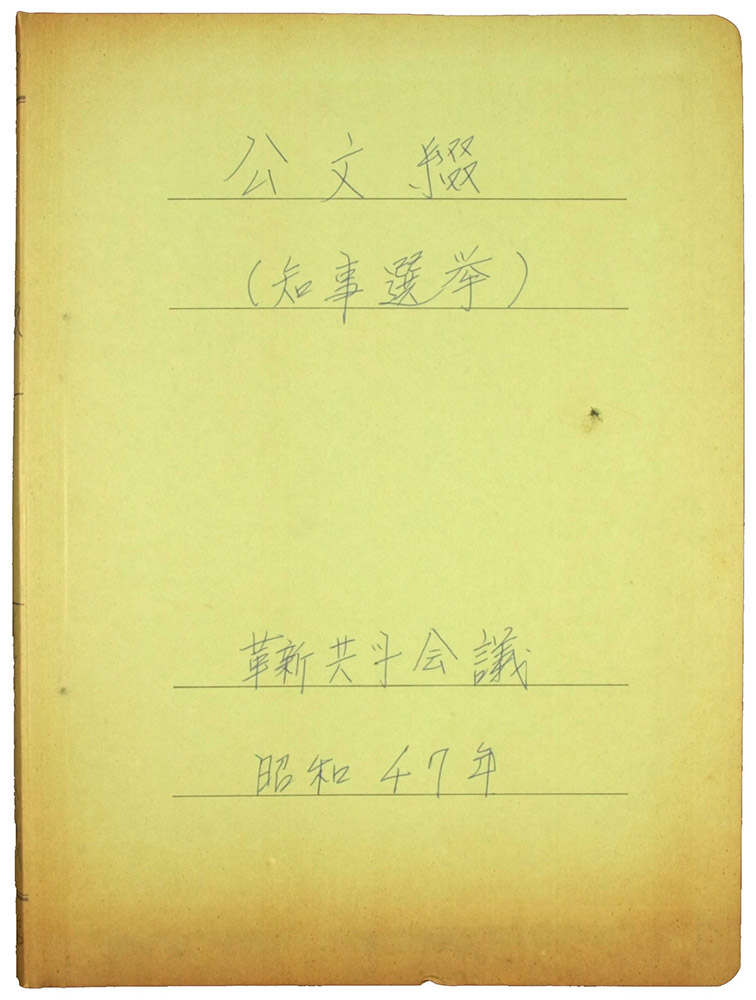 公文綴
(知事選挙)
革新共斗会議
昭和47年